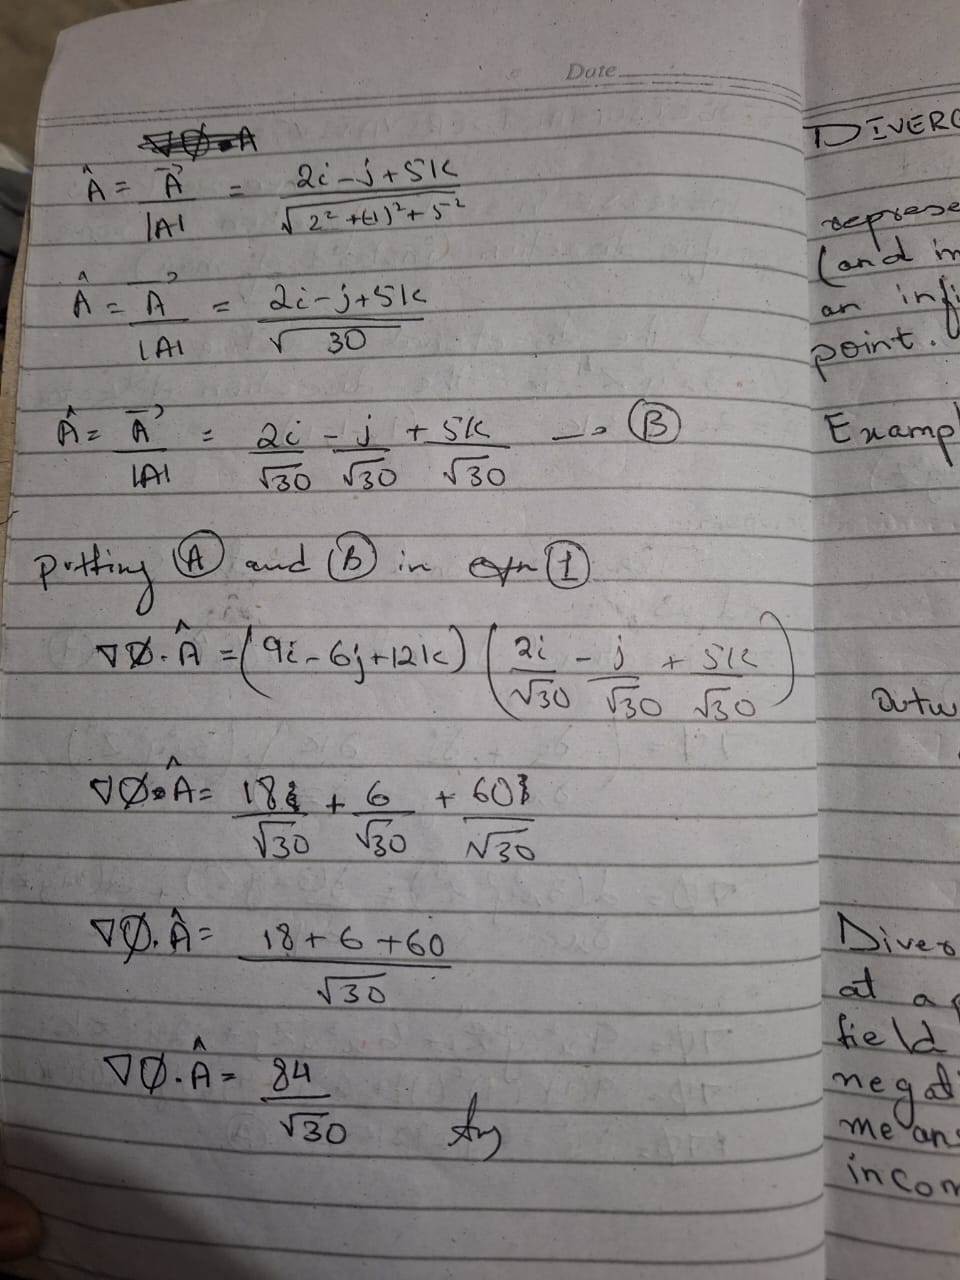 Date
∇∅·A
Â = A⃗/|A| = 2i - j + 5k / √2² + (-1)² + 5²
Â = A⃗/|A| = 2i - j + 5k / √30
Â = A⃗/|A| = 2i/√30 - j/√30 + 5k/√30 → Ⓑ
Putting Ⓐ and Ⓑ in eqn ①
∇∅·Â = (9i - 6j + 12k) (2i/√30 - j/√30 + 5k/√30)
∇∅·Â = 18/√30 + 6/√30 + 60/√30
∇∅·Â = 18 + 6 + 60 / √30
∇∅·Â = 84/√30 Ans
DIVERG
represe
(and in
an infi
point.
Exampl
Outw
Diver
at a p
field
negat
means
incom